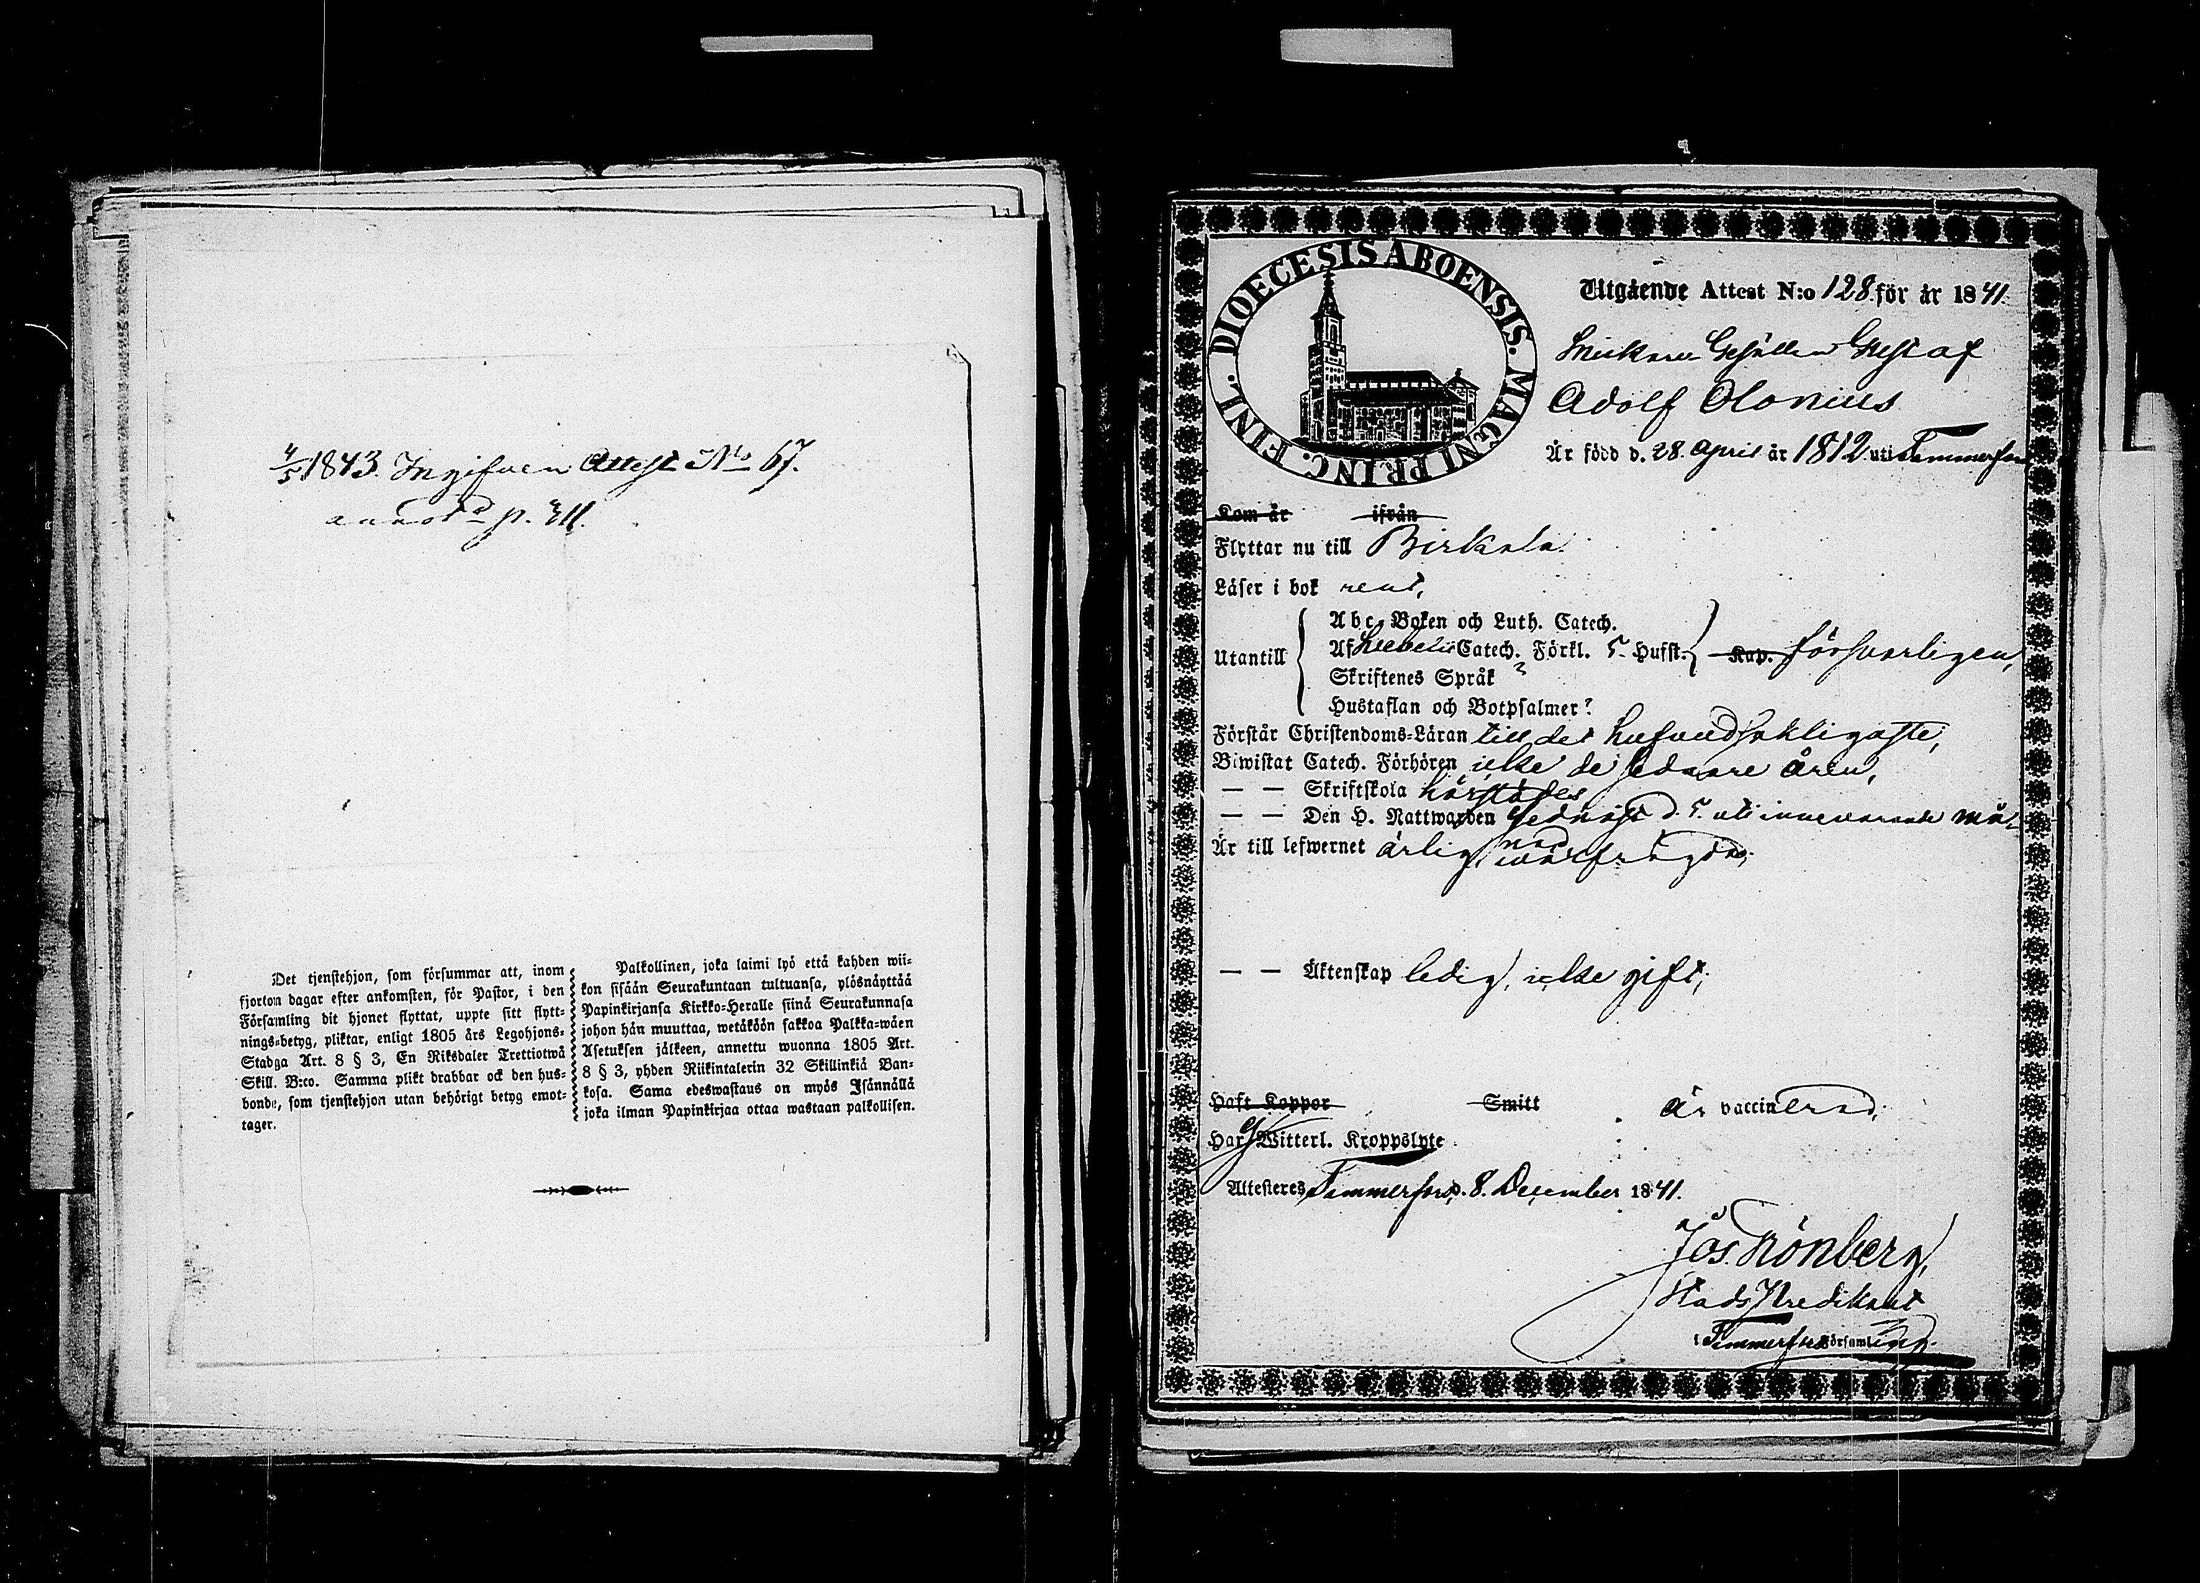 4/5 1843. Ingifven Attest No 67.
annot. p. 311.
Det tjenstehjon, som försummar att, inom
fjorton dagar efter ankomsten, för Pastor, i den
Församling dit hjonet flyttat, uppte sitt flytt-
nings-betyg, pliktar, enligt 1805 års Legohjons-
Stadga Art. 8 § 3, En Riksdaler Trettiotwå
Skill. B:co. Samma plikt drabbar ock den hus-
bonde, som tjenstehjon utan behörigt betyg emot-
tager.
Palkollinen, joka laimi lyö että kahden wii-
kon sisään Seurakuntaan tultuansa, ylösnäyttää
Papinkirjansa Kirkko-Heralle siinä Seurakunnasa
johon hän muuttaa, wetäköön sakkoa Palkka-wäen
Asetuksen jälkeen, annettu wuonna 1805 Art.
8 § 3, yhden Riikintalerin 32 Skillinkiä Ban-
kosa. Sama edeswastaus on myös Isännällä
joka ilman Papinkirjaa ottaa wastaan palkollisen.
DIOECESIS ABOENSIS. MAGNI PRINC. FINL.
Utgående Attest N:o 128 för år 1841.
Snickare Gesällen Gustaf
Adolf Olonius
Är född d. 28 April år 1812 uti Tammerfors
Kom år ifrån
Flyttar nu till Birkala.
Läser i bok rent,
Utantill
Abc-Boken och Luth. Catech.
Af Svebelii Catech. Förkl. 5 Hufst. Kap. försvarligen,
Skriftenes Språk ?
Hustaflan och Botpsalmer?
Förstår Christendoms-Läran till det hufvudsakligaste,
Biwistat Catech. Förhören icke de sednare åren,
— — Skriftskola härstädes
— — Den H. Nattwarden sednast d. 5. uti innevarande må-
nad
Är till lefwernet ärlig, wälfrägdad;
— — Äktenskap ledig, icke gift;
Haft Koppor Smitt är vaccinerad;
Har ej Witterl. Kroppslyte
Attesteres Tammerfors d. 8. December 1841.
Jos. Grönberg,
StadsPredikant
i Tammerfors Församling.